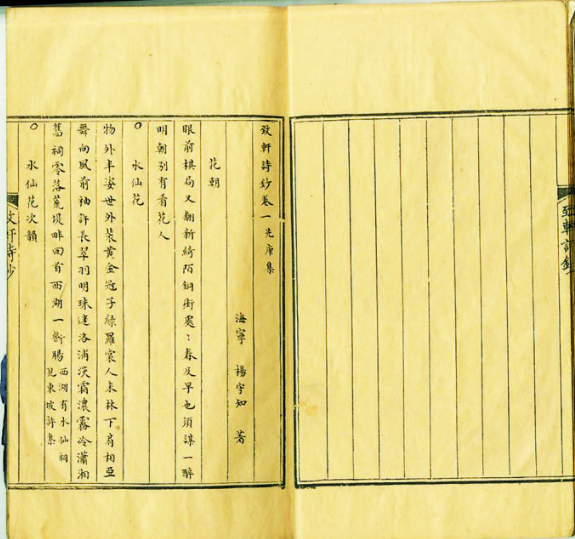 致軒詩鈔
致軒詩鈔卷一 先庚集
海寧 楊守知 著
花朝
眼前棋局又翻新綺陌銅街處〻春及早也須謀一醉
明朝別有看花人
○ 水仙花
物外丰姿世外裝黃金冠子綠羅裳人來林下肩相亞
舞向風前袖許長翠羽明珠迷洛浦淡霜濃露冷瀟湘
舊祠零落荒堤畔回首西湖一斷腸 西湖有水仙祠見東坡詩集
○ 水仙花次韻
致軒詩鈔